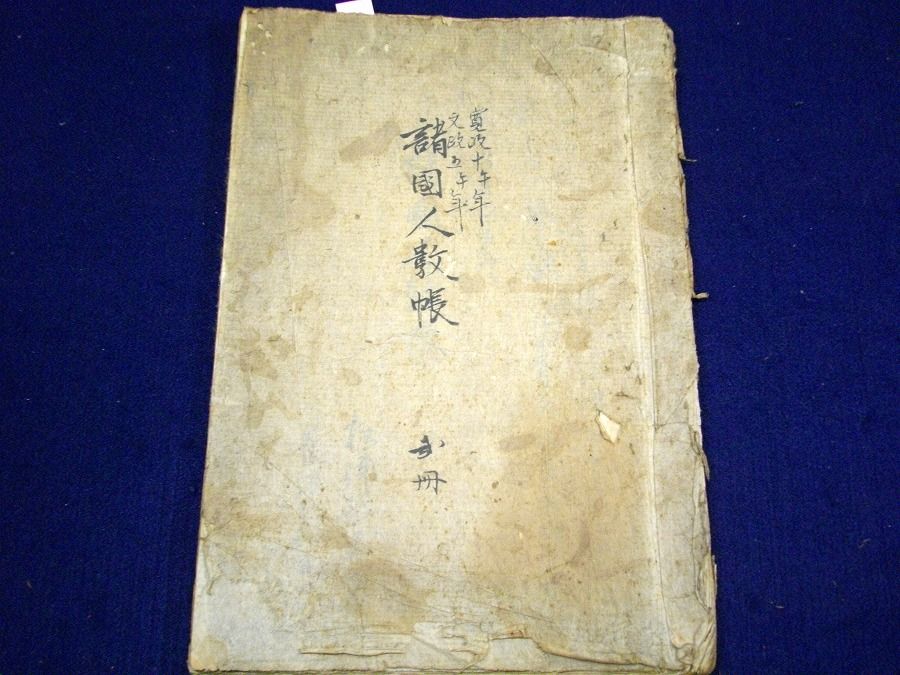 寛政十午年
文政五午年
諸國人数帳
弐冊